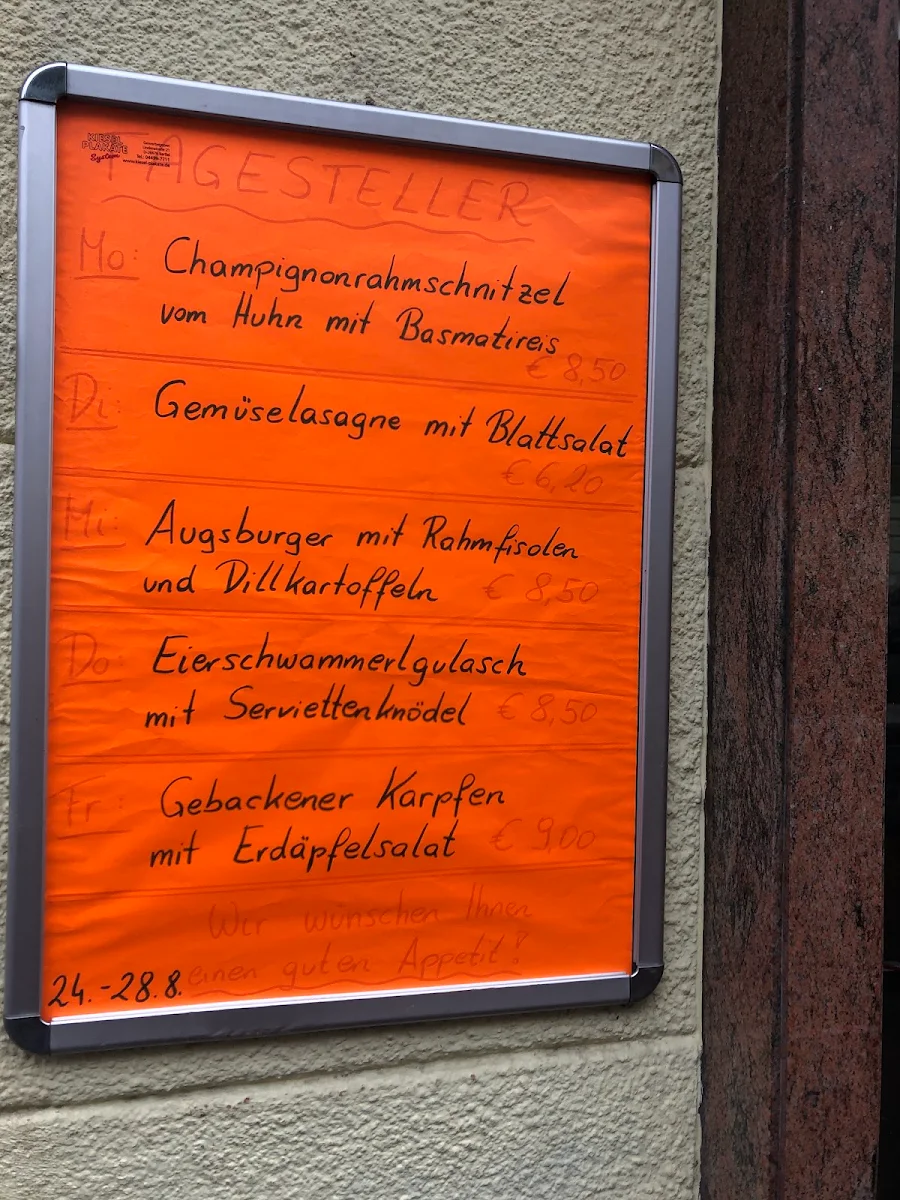 KIESEL
PLAKATE
System
TAGESTELLER
Mo: Champignonrahmschnitzel
vom Huhn mit Basmatireis
€ 8,50
Di: Gemüselasagne mit Blattsalat
€ 6,20
Mi: Augsburger mit Rahmfisolen
und Dillkartoffeln € 8,50
Do: Eierschwammerlgulasch
mit Serviettenknödel € 8,50
Fr: Gebackener Karpfen
mit Erdäpfelsalat € 9,00
Wir wünschen Ihnen
einen guten Appetit!
24.-28.8.